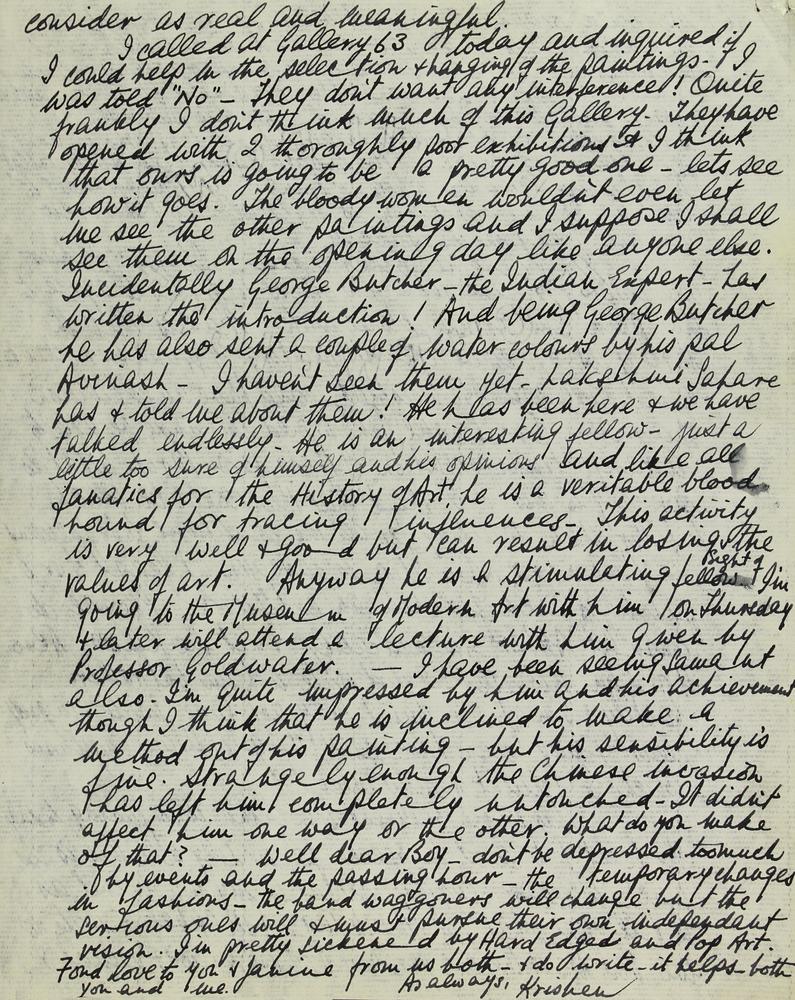 consider as real and meaningful.
I called at Gallery 63 today and inquired if
I could help in the selection & hanging of the paintings. I
was told "No" – They dont want any interference! Quite
frankly I dont think much of this Gallery. They have
opened with 2 thoroughly poor exhibitions & I think
that ours is going to be a pretty good one – lets see
how it goes. The bloody women wouldn't even let
me see the other paintings and I suppose I shall
see them on the opening day like anyone else.
Incidentally George Butcher – the Indian Expert – has
written the introduction! And being George Butcher
he has also sent a couple of water colours by his pal
Avinash – I haven't seen them yet – Lakshmi Sahare
has & told me about them! He has been here & we have
talked endlessly – He is an interesting fellow – just a
little too sure of himself and his opinions and like all
fanatics for the History of Art he is a veritable blood
hound for tracing influences – This activity
is very well & good but can result in losing the
Sight of
values of art. Anyway he is a stimulating fellow I'm
going to the Museum of Modern Art with him on Thursday
& later will attend a lecture with him given by
Professor Goldwater. — I have been seeing Samant
also. I'm quite impressed by him and his achievement
though I think that he is inclined to make a
method out of his painting – but his sensibility is
fine. Strangely enough the Chinese invasion
has left him completely untouched – It didn't
affect him one way or the other. What do you make
of that? — Well dear Boy – dont be depressed too much
by events and the passing hour – the temporary changes
in fashions – the band waggoners will change but the
serious ones will & must pursue their own independant
vision. I'm pretty sickened by Hard Edged and Pop Art.
Fond love to you & Janine from us both – & do write – it helps both
you and me. As always, Krishen